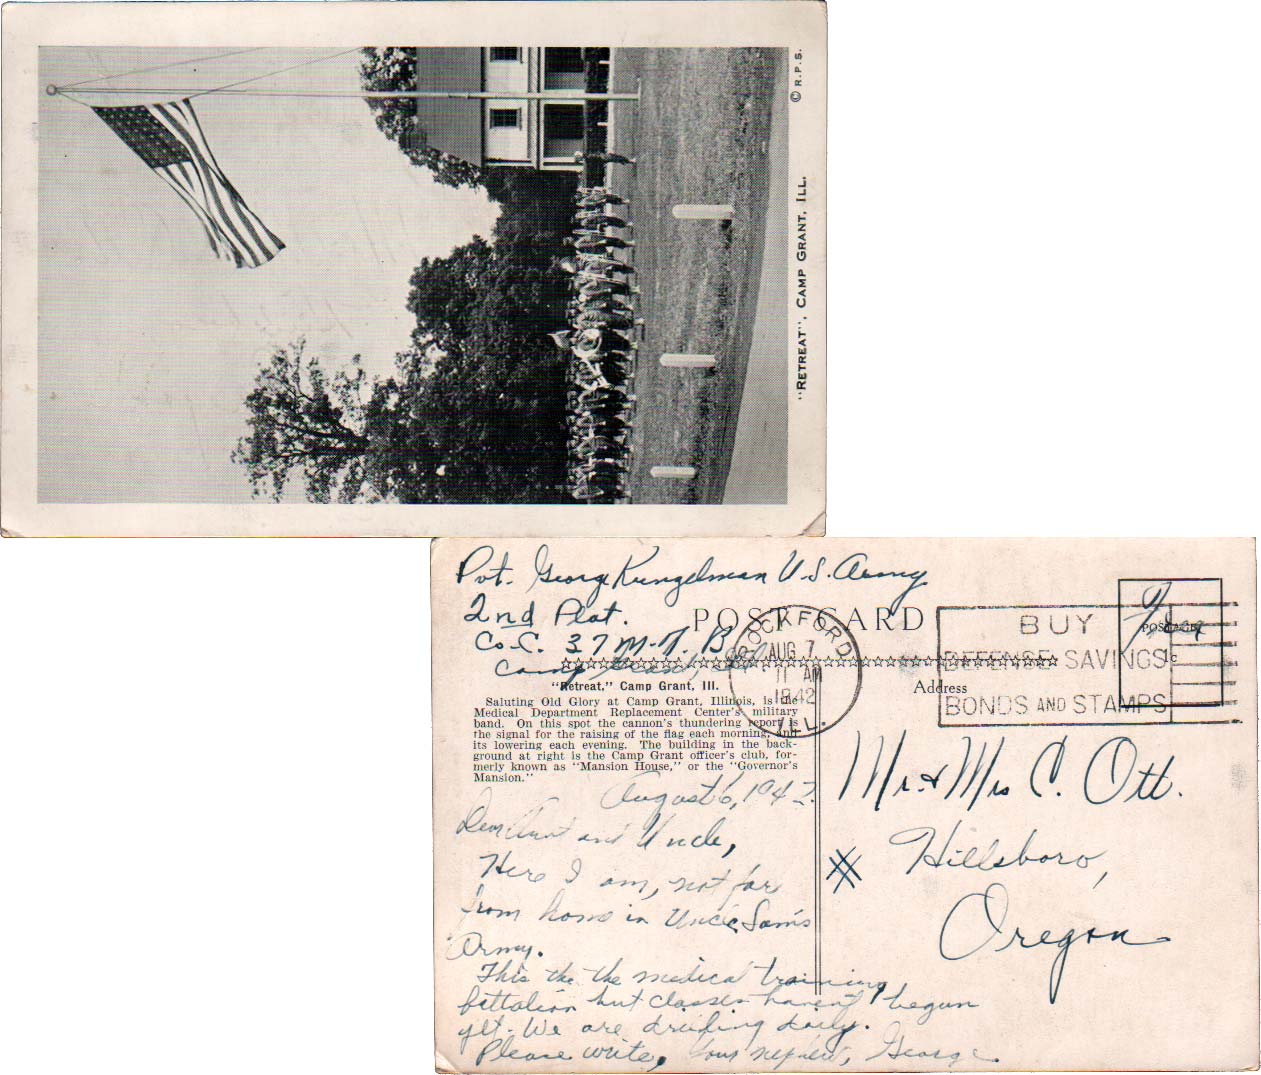 © R.P.S.
"RETREAT", CAMP GRANT, ILL.
Pvt. George Kungelman U.S. Army
2nd Plat.
Co-C. 37 M.T.B.
Camp Grant, Ill.
POST CARD
ROCKFORD
AUG 7
11 AM
1942
ILL.
BUY
DEFENSE SAVINGS
BONDS AND STAMPS
Free
POSTAGE
1c
"Retreat," Camp Grant, Ill.
Saluting Old Glory at Camp Grant, Illinois, is the
Medical Department Replacement Center's military
band. On this spot the cannon's thundering report is
the signal for the raising of the flag each morning, and
its lowering each evening. The building in the back-
ground at right is the Camp Grant officer's club, for-
merly known as "Mansion House," or the "Governor's
Mansion."
Address
August 6, 1942.
Dear Aunt and Uncle,
Here I am, not far
from home in Uncle Sam's
Army.
This the the medical training
battalion but classes haven't begun
yet. We are drilling daily.
Please write, Your nephew, George
Mr. & Mrs C. Ott.
Hillsboro,
Oregon